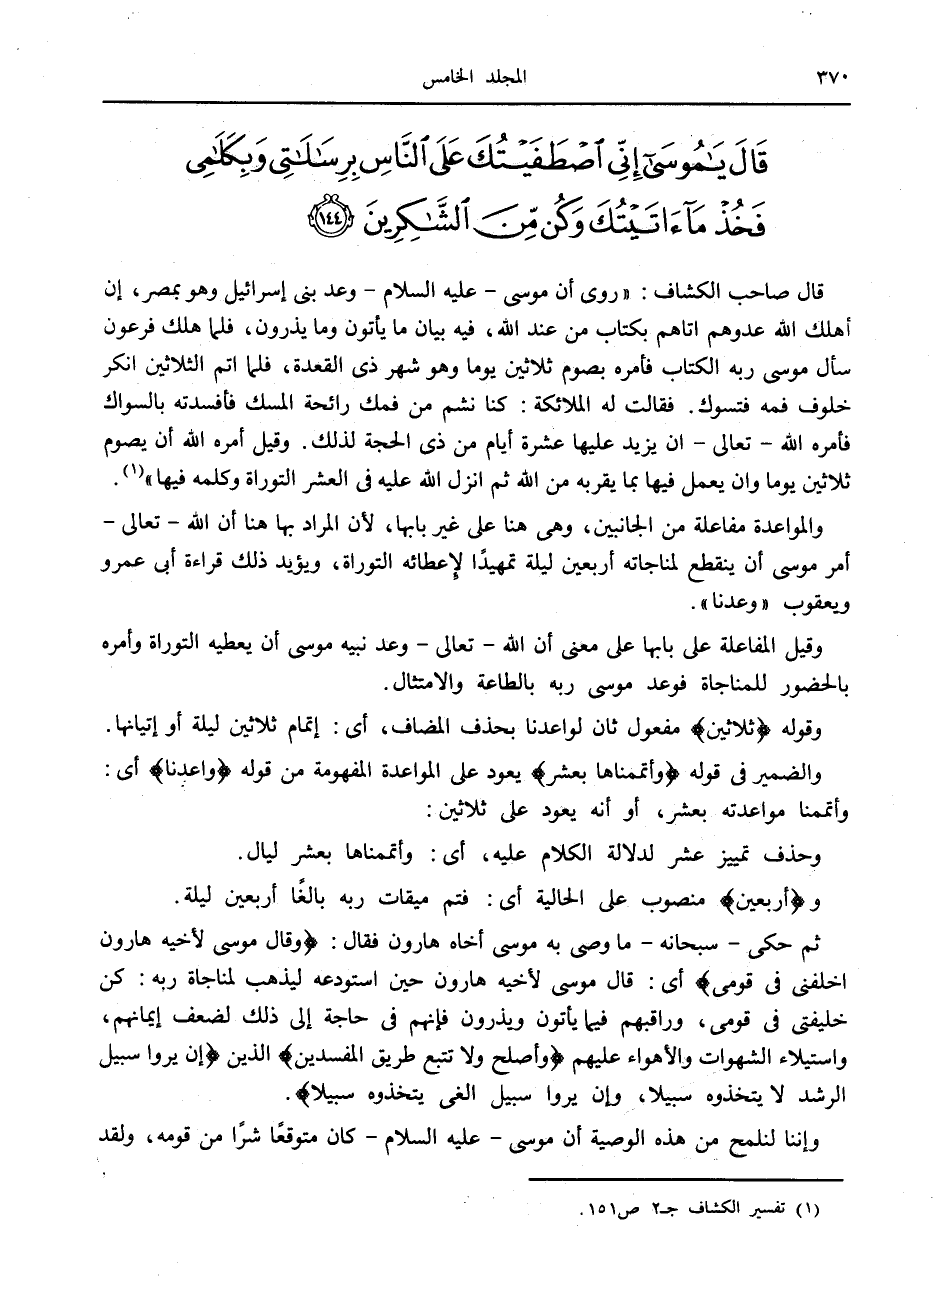 ٣٧٠ المجلد الخامس
قَالَ يَـٰمُوسَىٰٓ إِنِّى ٱصْطَفَيْتُكَ عَلَى ٱلنَّاسِ بِرِسَـٰلَـٰتِى وَبِكَلَـٰمِى
فَخُذْ مَآ ءَاتَيْتُكَ وَكُن مِّنَ ٱلشَّـٰكِرِينَ ﴿١٤٤﴾
قال صاحب الكشاف : «روى أن موسى - عليه السلام - وعد بنى إسرائيل وهو بمصر، إن
أهلك الله عدوهم اتاهم بكتاب من عند الله، فيه بيان ما يأتون وما يذرون، فلما هلك فرعون
سأل موسى ربه الكتاب فأمره بصوم ثلاثين يوما وهو شهر ذى القعدة، فلما اتم الثلاثين انكر
خلوف فمه فتسوك. فقالت له الملائكة : كنا نشم من فمك رائحة المسك فأفسدته بالسواك
فأمره الله - تعالى - ان يزيد عليها عشرة أيام من ذى الحجة لذلك. وقيل أمره الله أن يصوم
ثلاثين يوما وان يعمل فيها بما يقربه من الله ثم انزل الله عليه فى العشر التوراة وكلمه فيها»(١).
والمواعدة مفاعلة من الجانبين، وهى هنا على غير بابها، لأن المراد بها هنا أن الله - تعالى -
أمر موسى أن ينقطع لمناجاته أربعين ليلة تمهيدًا لإعطائه التوراة، ويؤيد ذلك قراءة أبى عمرو
ويعقوب «وعدنا».
وقيل المفاعلة على بابها على معنى أن الله - تعالى - وعد نبيه موسى أن يعطيه التوراة وأمره
بالحضور للمناجاة فوعد موسى ربه بالطاعة والامتثال.
وقوله ﴿ثلاثين﴾ مفعول ثان لواعدنا بحذف المضاف، أى : إتمام ثلاثين ليلة أو إتيانها.
والضمير فى قوله ﴿وأتممناها بعشر﴾ يعود على المواعدة المفهومة من قوله ﴿واعدنا﴾ أى :
وأتممنا مواعدته بعشر، أو أنه يعود على ثلاثين :
وحذف تمييز عشر لدلالة الكلام عليه، أى : وأتممناها بعشر ليال.
و﴿أربعين﴾ منصوب على الحالية أى : فتم ميقات ربه بالغًا أربعين ليلة.
ثم حكى - سبحانه - ما وصى به موسى أخاه هارون فقال : ﴿وقال موسى لأخيه هارون
اخلفنى فى قومى﴾ أى : قال موسى لأخيه هارون حين استودعه ليذهب لمناجاة ربه : كن
خليفتى فى قومى، وراقبهم فيما يأتون ويذرون فإنهم فى حاجة إلى ذلك لضعف إيمانهم،
واستيلاء الشهوات والأهواء عليهم ﴿وأصلح ولا تتبع طريق المفسدين﴾ الذين ﴿إن يروا سبيل
الرشد لا يتخذوه سبيلا، وإن يروا سبيل الغى يتخذوه سبيلا﴾.
وإننا لنلمح من هذه الوصية أن موسى - عليه السلام - كان متوقعًا شرًا من قومه، ولقد
(١) تفسير الكشاف جـ٢ ص١٥١.